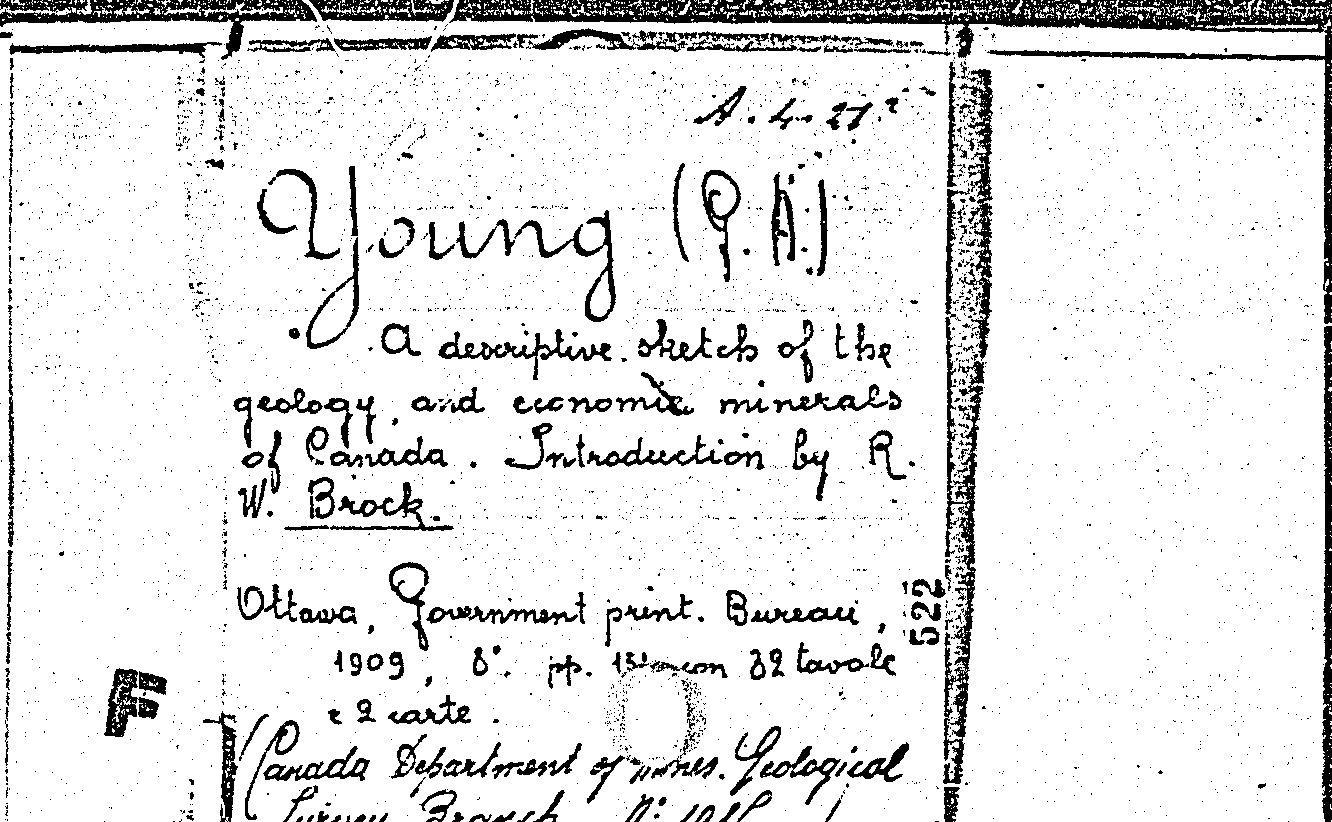 A. 4. 27.²
Young (G. A.)
A descriptive sketch of the
geology and economic minerals
of Canada. Introduction by R.
W. Brock.
Ottawa, Government print. Bureau,
522
1909, 8°. pp. con 82 tavole
e 2 carte.
F
(Canada Department of mines. Geological
Survey Branch N°